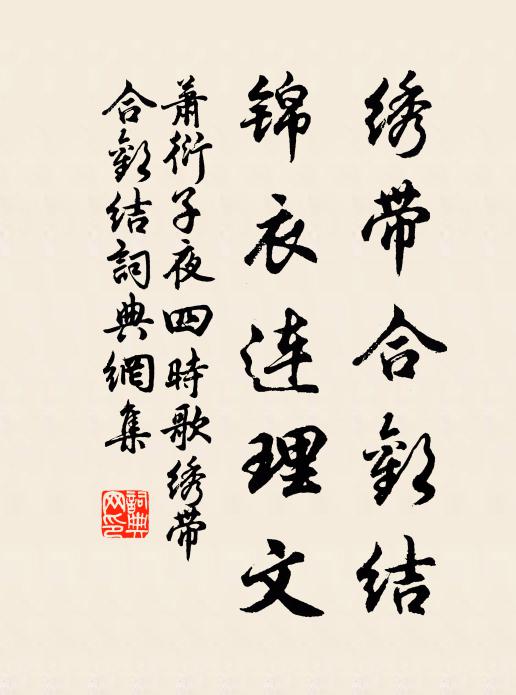 绣带合欢结
锦衣连理文
萧衍子夜四時歌绣带
合欢结詞典網集
詞典网印